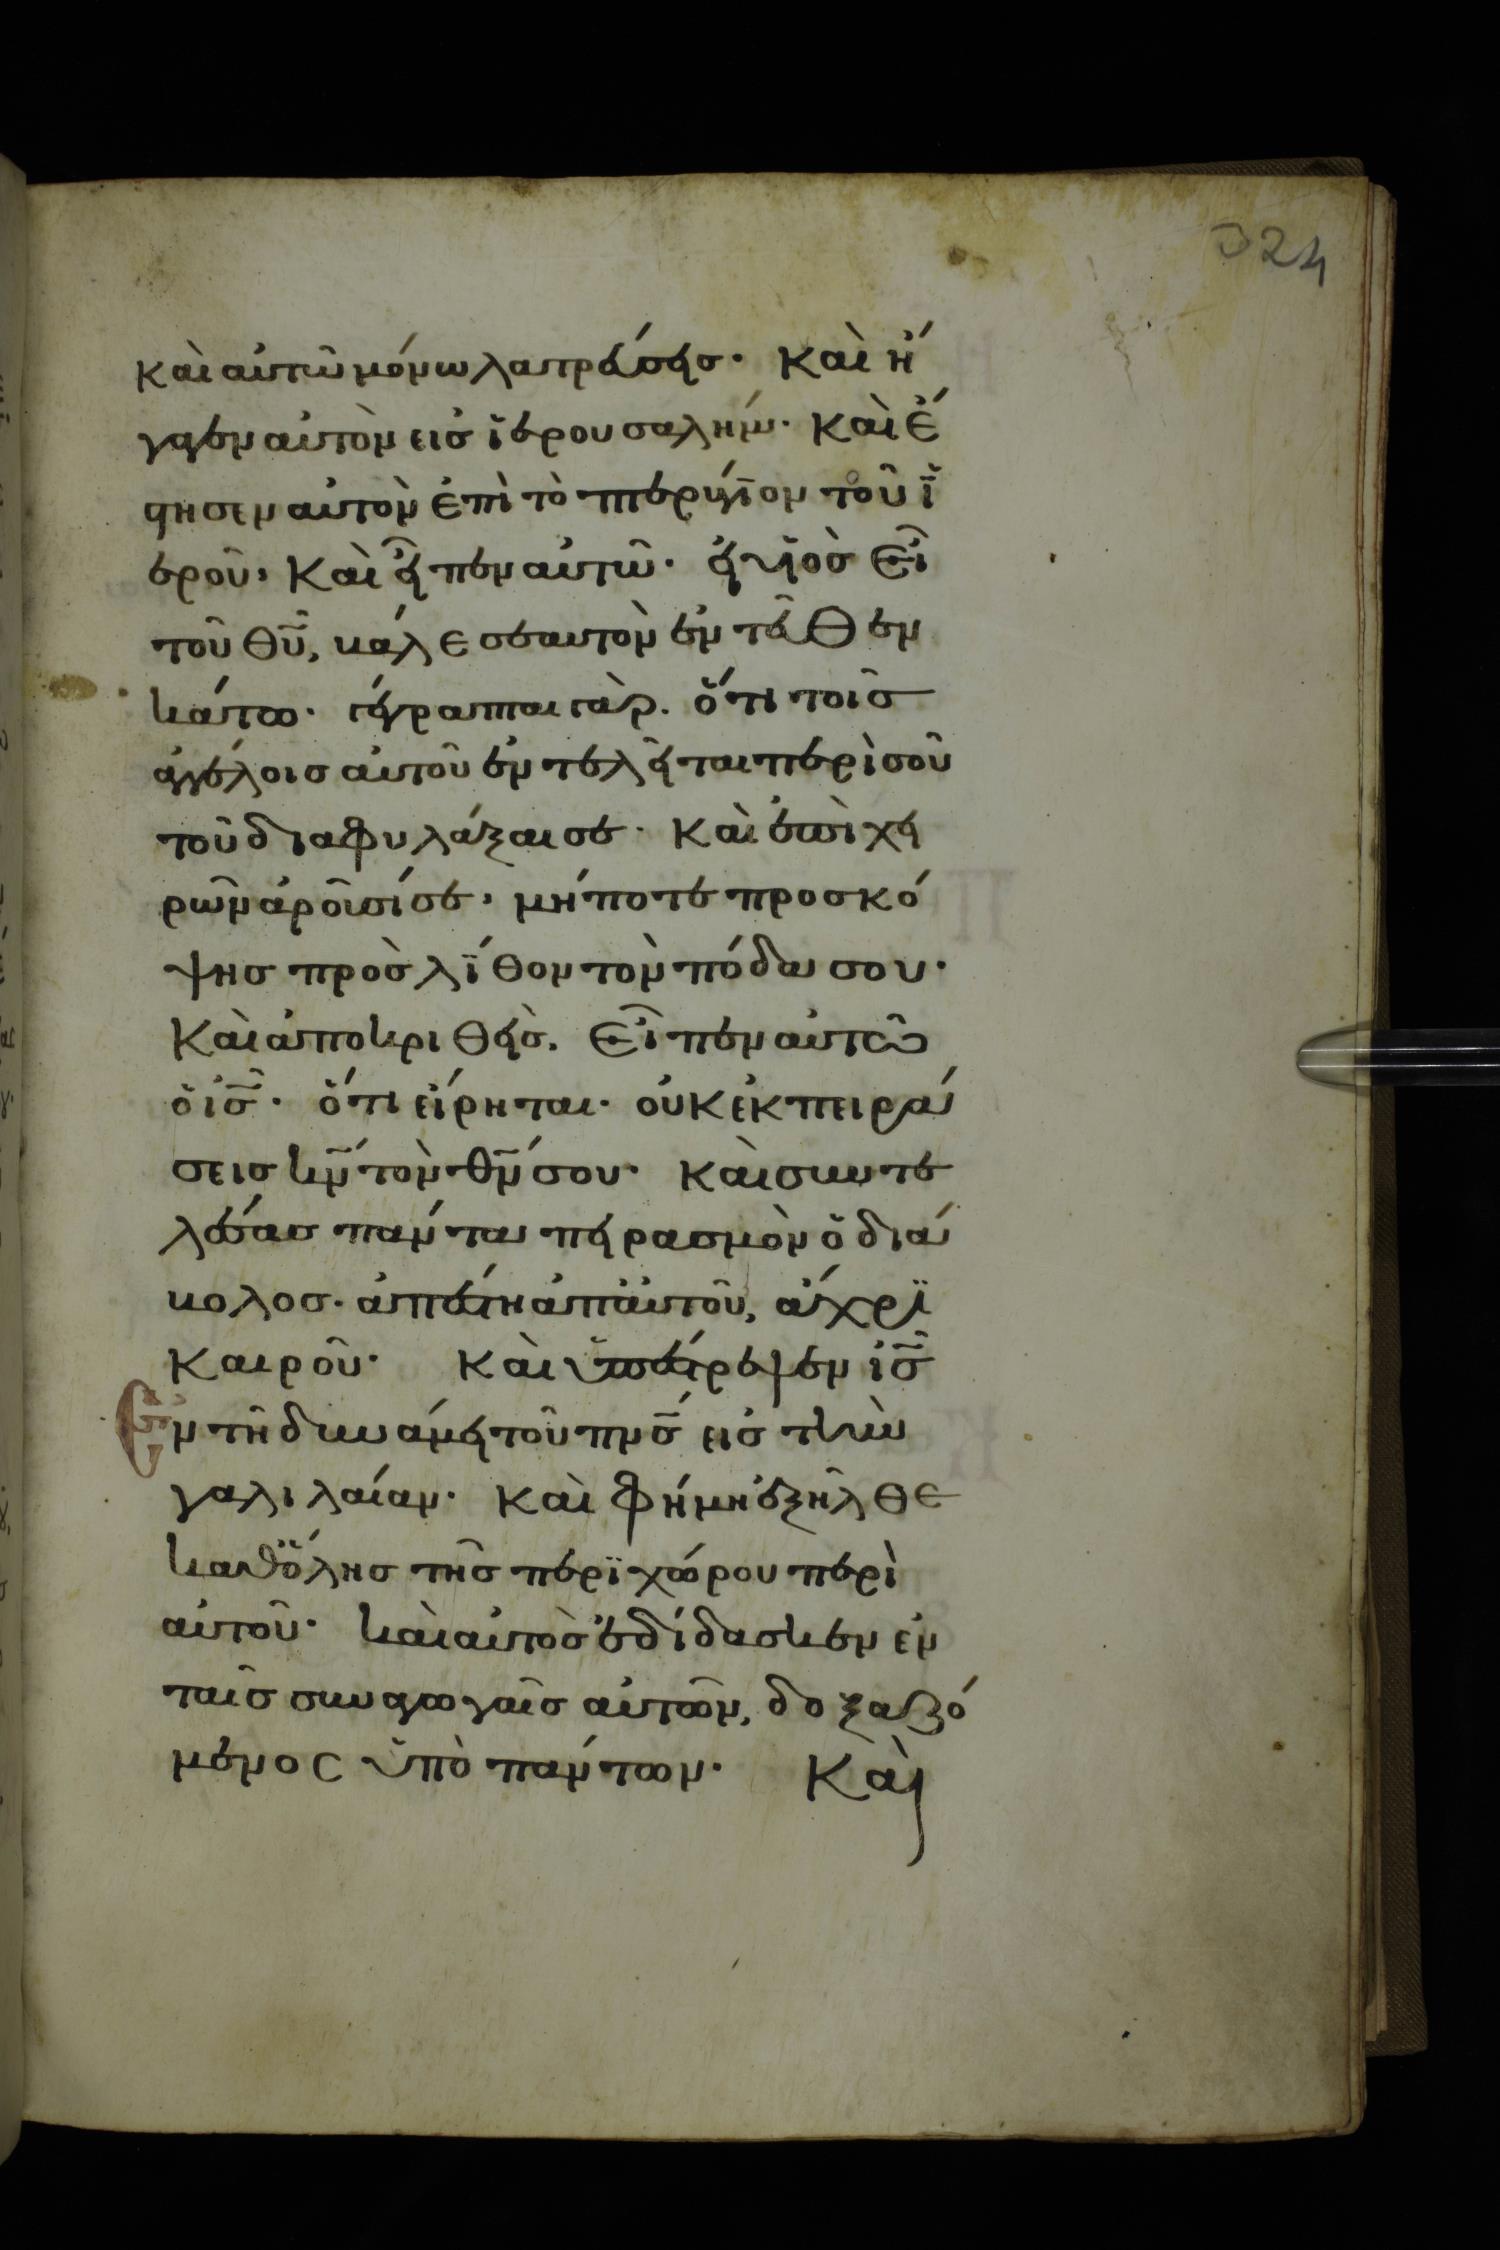 324
καὶ αὐτῶ μόνω λατρεύσεις· Καὶ ἤ
γαγεν αὐτὸν εἰς ἱερουσαλήμ· Καὶ ἔ
στησεν αὐτὸν ἐπὶ τὸ πτερύγϊον τοῦ ϊ
εροῦ, Καὶ εἶπεν αὐτῶ· εἰ υἱὸς Εἶ
τοῦ θυ̅, βάλε σεαυτὸν ἐντεῦθεν
κάτω· γέγραπται γὰρ. ὅτι τοῖς
ἀγγέλοις αὐτοῦ ἐντελεῖται περὶ σοῦ
τοῦ διαφυλάξαι σε· Καὶ ἐπὶ χει
ρῶν ἀροῦσί σε, μήποτε προσκό
ψης πρὸς λίθον τὸν πόδα σου·
Καὶ ἀποκριθεὶς. Εἶπεν αὐτῶ
ὁ ις̅· ὅτι εἴρηται· οὐκ ἐκπειρά
σεις κν̅ τὸν θν̅ σου· Καὶ συντε
λέσας πάντα πειρασμὸν ὁ διά
βολος· ἀπέστη ἀπ αὐτοῦ, ἄχρϊ
Καιροῦ· Καὶ ὑπέστρεψεν ις̅
Ἐν τῆ δυνάμει τοῦ πνς̅ εἰς τὴν
γαλιλαίαν· Καὶ φήμη ἐξῆλθε
καθ ὅλης τῆς περϊχώρου περὶ
αὐτοῦ· καὶ αὐτὸς ἐδίδασκεν ἐν
ταῖς συναγωγαῖς αὐτῶν, δοξαζό
μενος ὑπὸ πάντων· Καὶ